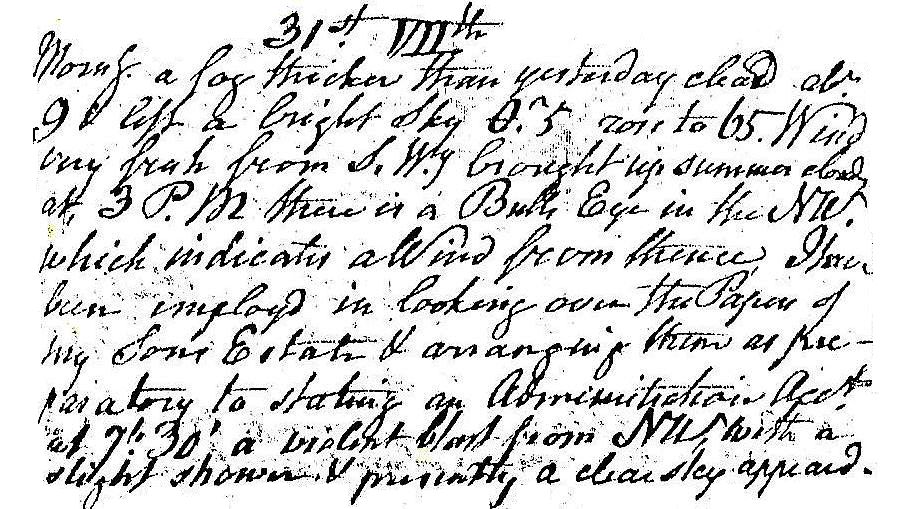 31st VIIth
Morng. a fog thicker than yesterday cleard abt
9 & left a bright Sky 0.75 rose to 65. Wind
very fresh from S. Wy brought up summer clouds
at 3 P.M there is a Bulls Eye in the NW.
which indicates a Wind from thence, I have
been employd in looking over the Papers of
my Sons Estate & arranging them as pre-
paratory to stating an Administration Acct.
at 7h 30' a violent blast from NW, with a
slight shower & presently a clear sky appeard.